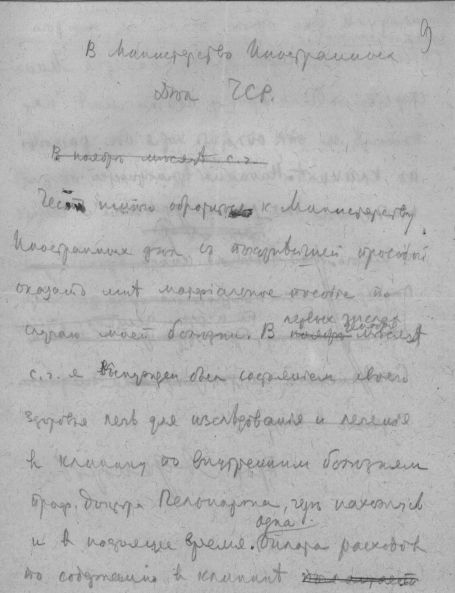 9
В Министерство Иностранных
Дѣл ЧСР.
В ноябрѣ мѣсяцѣ с. г.
Честь имѣю обратиться к Министерству
Иностранных дѣл съ покорнѣйшей просьбой
оказать мнѣ матеріальное пособіе по
случаю моей болѣзни. В первых числах ноября мѣсяца
с. г. я вынужден был состоянием своего
здоровья лечь для изслѣдованія и леченія
в клинику по внутренним болѣзням
проф. доктора, гдѣ нахожусь
и в настоящее время. Одна оплата расходов
по содержанію в клиникѣ